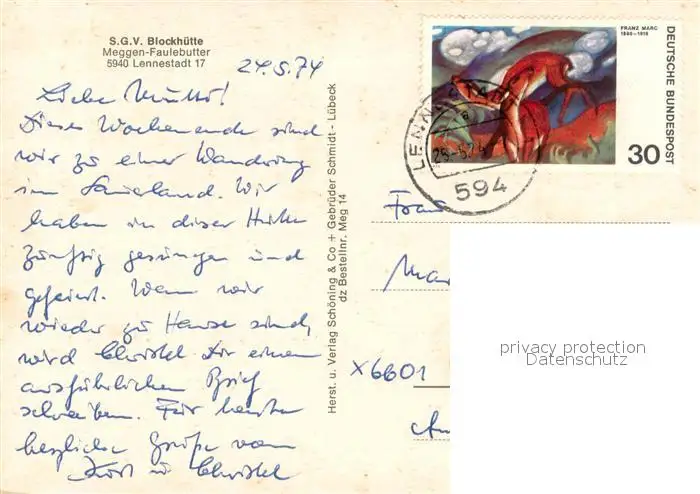 S.G.V. Blockhütte
Meggen-Faulebutter
5940 Lennestadt 17
24.5.74
Liebe Mutti!
Dieses Wochenende sind
wir zu einer Wanderung
im Sauerland. Wir
haben in dieser Hütte
zünftig gesungen und
gefeiert. Wenn wir
wieder zu Hause sind,
wird Christel Dir einen
ausführlichen Brief
schreiben. Für heute
herzliche Grüße von
Christel
Herst. u. Verlag Schöning & Co + Gebrüder Schmidt - Lübeck
dz Bestellnr. Meg 14
FRANZ MARC
1880-1916
DEUTSCHE BUNDESPOST
30
594
Frau
x6601
privacy protection
Datenschutz